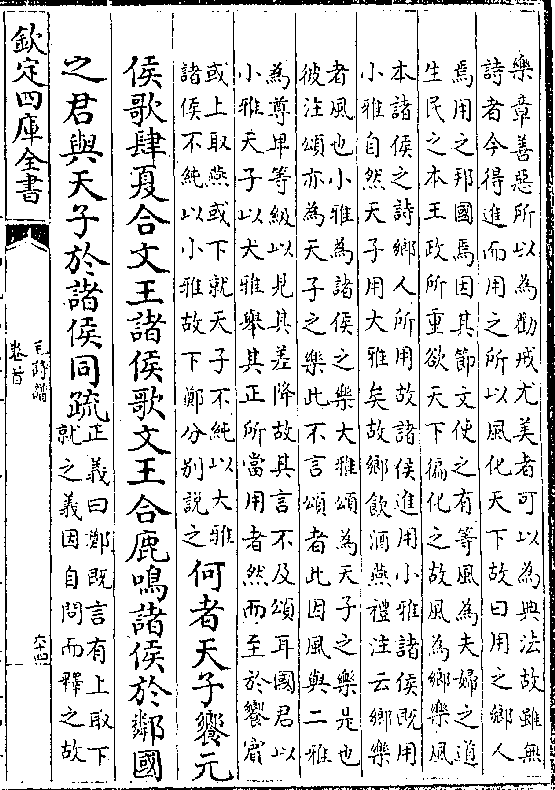 樂章善惡所以為勸戒尤美者可以為典法故雖無
詩者今得進而用之所以風化天下故曰用之鄉人
焉用之邦國焉因其節文使之有等風為夫婦之道
生民之本王政所重欲天下徧化之故風為鄉樂風
本諸侯之詩鄉人所用故諸侯進用小雅諸侯既用
小雅自然天子用大雅矣故鄉飲酒燕禮注云鄉樂
者風也小雅為諸侯之樂大雅頌為天子之樂是也
彼注頌亦為天子之樂此不言頌者此因風與二雅
為尊卑等級以見其差降故其言不及頌耳國君以
小雅天子以大雅舉其正所當用者然而至於饗賓
或上取燕或下就天子不純以大雅
諸侯不純以小雅故下鄭分别説之
何者天子饗元
侯歌肆夏合文王諸侯歌文王合鹿鳴諸侯於鄰國
之君與天子於諸侯同疏
正義曰鄭既言有上取下
就之義因自問而釋之故
欽定四庫全書
毛詩譜
卷首
六十四